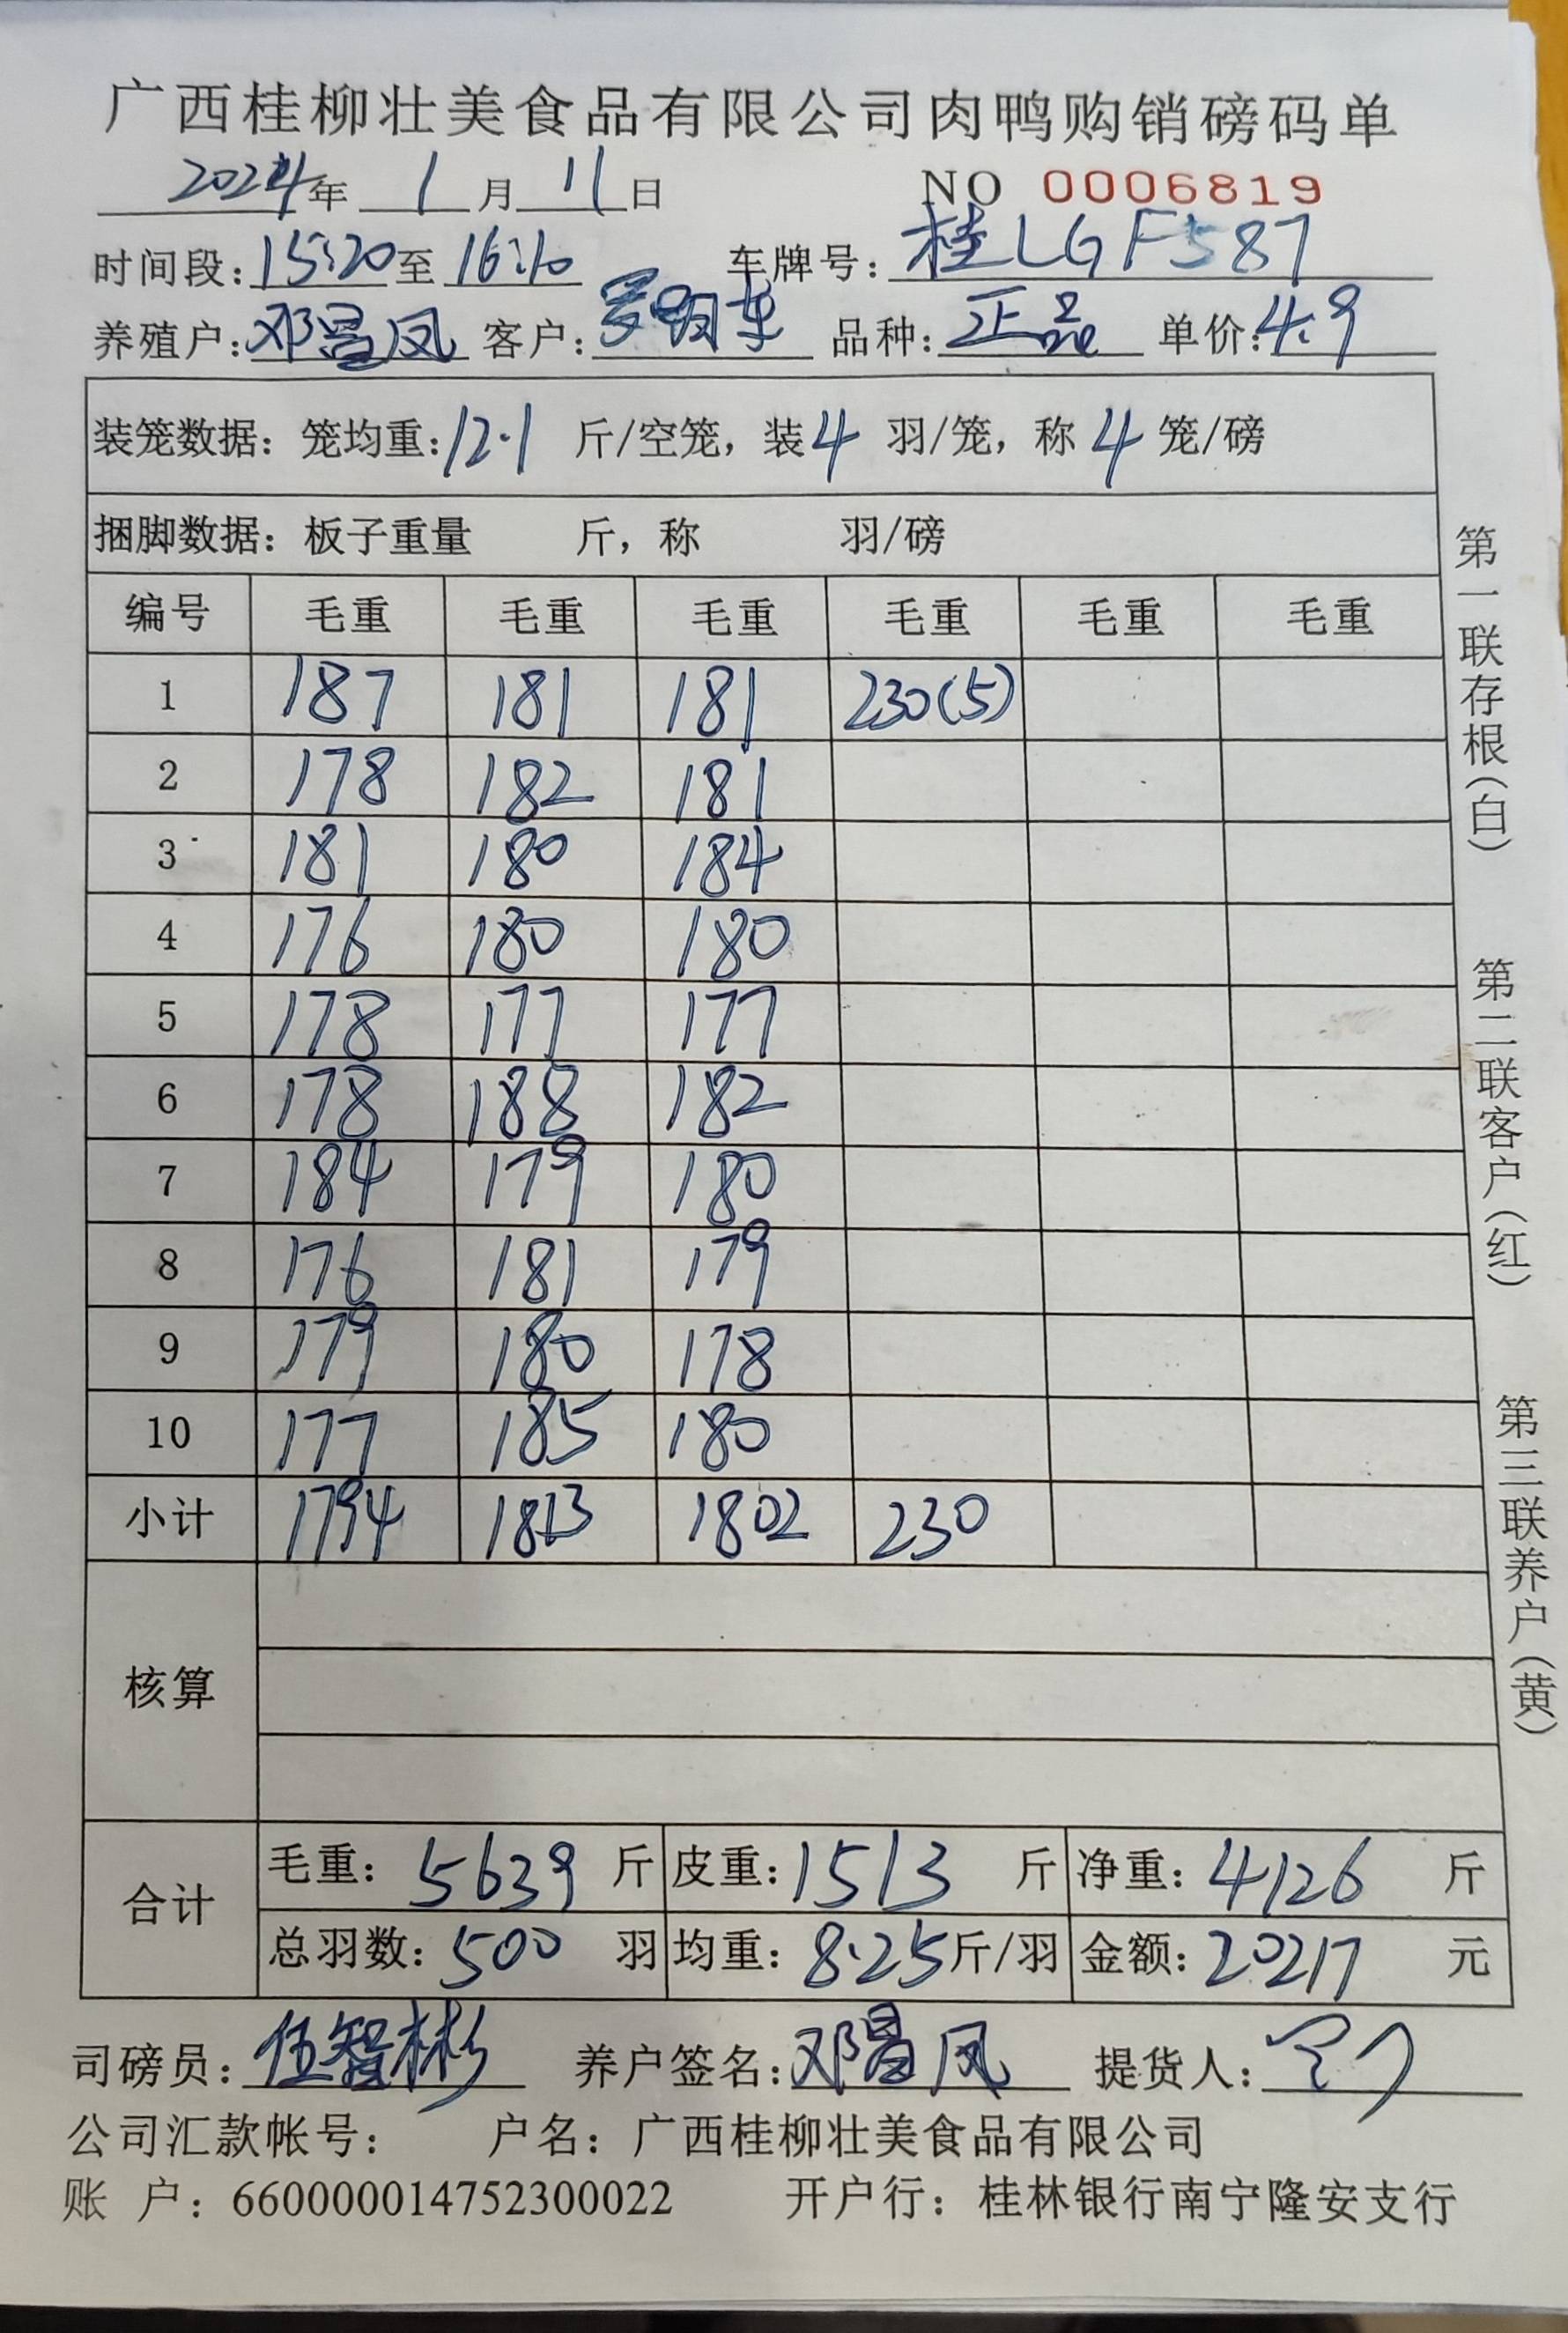 广西桂柳壮美食品有限公司肉鸭购销磅码单
2024年 1月 11日 NO 0006819
时间段:15:20至16:10 车牌号:桂LGF587
养殖户:邓昌凤 客户:罗明东 品种:正品 单价:4.9
装笼数据:笼均重:12.1 斤/空笼,装4 羽/笼,称4 笼/磅
捆脚数据:板子重量 斤,称 羽/磅
编号 毛重 毛重 毛重 毛重 毛重 毛重
1 187 181 181 230(5)
2 178 182 181
3 181 180 184
4 176 180 180
5 178 177 177
6 178 188 182
7 184 179 180
8 176 181 179
9 179 180 178
10 177 185 180
小计 1794 1813 1802 230
核算
合计
毛重:5639 斤 皮重:1513 斤 净重:4126 斤
总羽数:500 羽 均重:8.25斤/羽 金额:20217 元
司磅员:伍智彬 养户签名:邓昌凤 提货人:
公司汇款帐号: 户名:广西桂柳壮美食品有限公司
账 户:660000014752300022 开户行:桂林银行南宁隆安支行
第一联存根(白)
第二联客户(红)
第三联养户(黄)